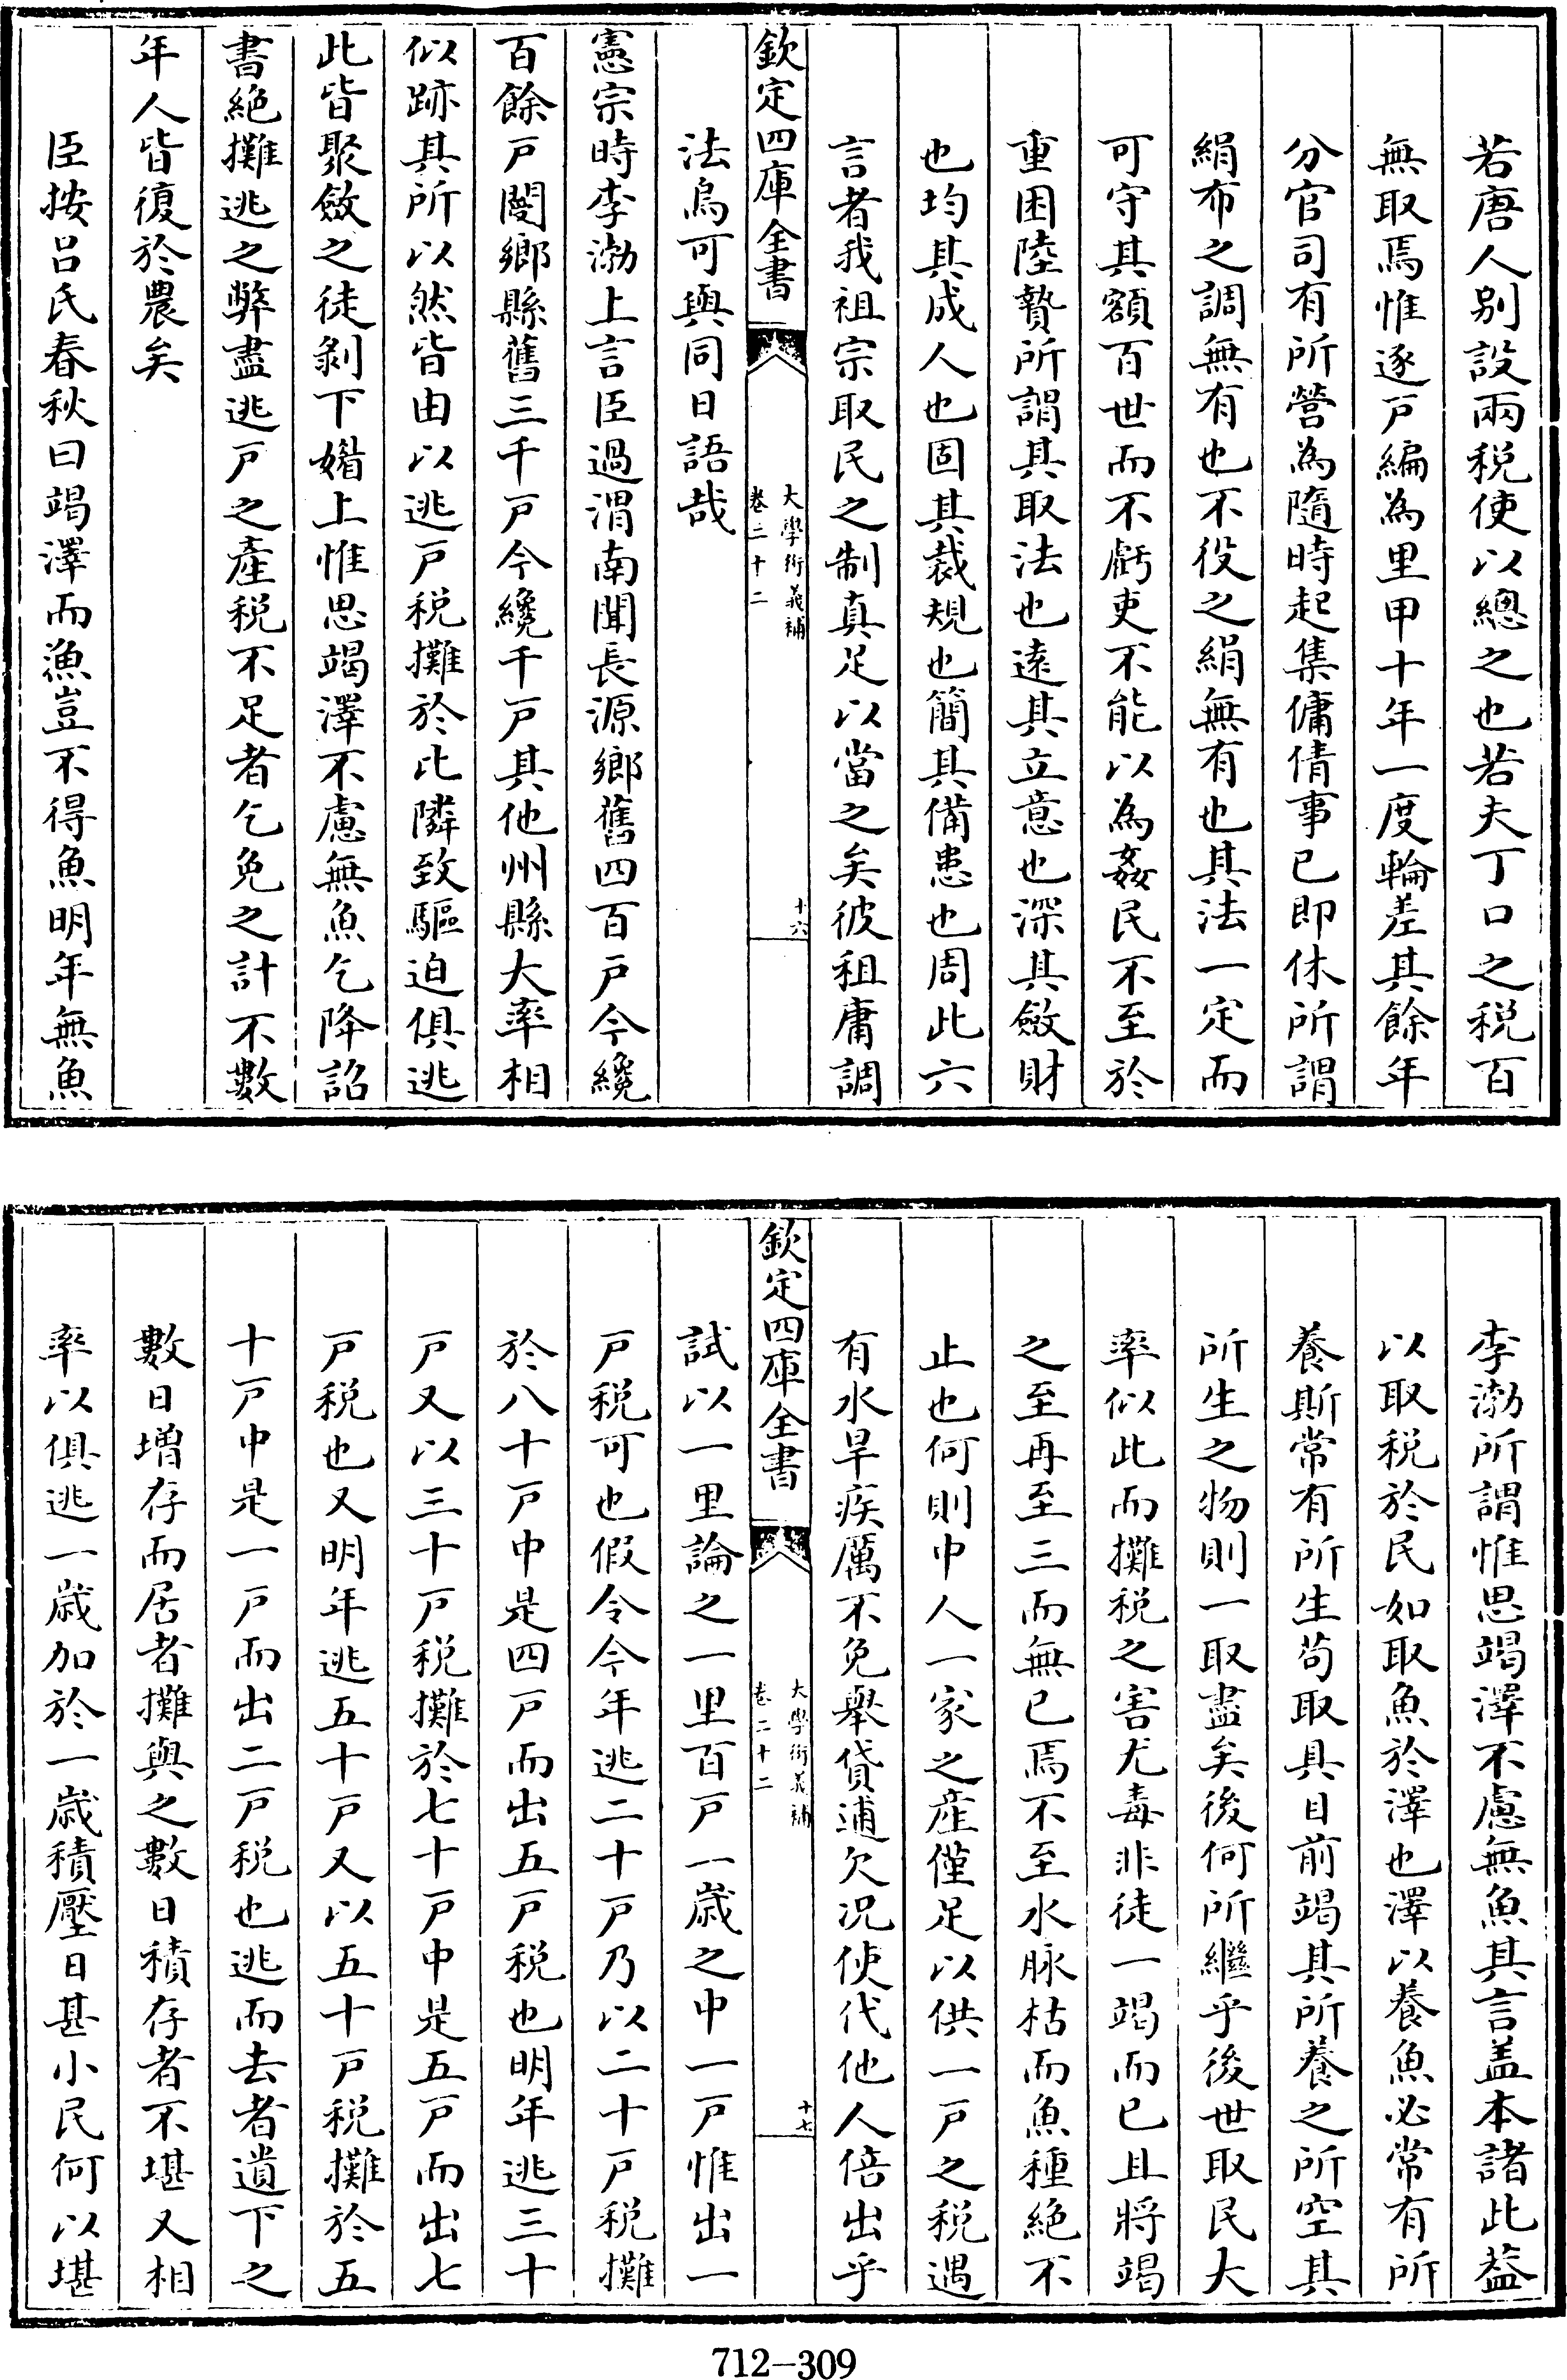 若唐人别設兩税使以總之也若夫丁口之税百
無取焉惟逐戸編為里甲十年一度輪差其餘年
分官司有所營為隨時起集傭倩事已即休所謂
絹布之調無有也不役之絹無有也其法一定而
可守其額百世而不虧吏不能以為姦民不至於
重困陸贄所謂其取法也逺其立意也深其斂財
也均其成人也固其裁規也簡其備患也周此六
言者我祖宗取民之制真足以當之矣彼租庸調
欽定四庫全書
大學衍義補
卷二十二
十六
法烏可與同日語哉
憲宗時李渤上言臣過渭南聞長源鄉舊四百戸今纔
百餘戸閿鄉縣舊三千戸今纔千戸其他州縣大率相
似跡其所以然皆由以逃戸税攤於比隣致驅迫俱逃
此皆聚斂之徒剥下媚上惟思竭澤不慮無魚乞降詔
書絶攤逃之弊盡逃戸之產税不足者乞免之計不數
年人皆復於農矣
臣按吕氏春秋曰竭澤而漁豈不得魚明年無魚
李渤所謂惟思竭澤不慮無魚其言盖本諸此葢
以取税於民如取魚於澤也澤以養魚必常有所
養斯常有所生苟取具目前竭其所養之所空其
所生之物則一取盡矣後何所繼乎後世取民大
率似此而攤税之害尤毒非徒一竭而已且將竭
之至再至三而無已焉不至水脉枯而魚種絶不
止也何則中人一家之産僅足以供一戸之税遇
有水旱疾厲不免舉貸逋欠况使代他人倍出乎
欽定四庫全書
大學衍義補
卷二十二
十七
試以一里論之一里百戸一歲之中一戸惟出一
戸税可也假令今年逃二十戸乃以二十戸税攤
於八十戸中是四戸而出五戸税也明年逃三十
戸又以三十戸税攤於七十戸中是五戸而出七
戸税也又明年逃五十戸又以五十戸税攤於五
十戸中是一戸而出二戸税也逃而去者遺下之
數日增存而居者攤與之數日積存者不堪又相
率以俱逃一歲加於一歲積壓日甚小民何以堪
712-309